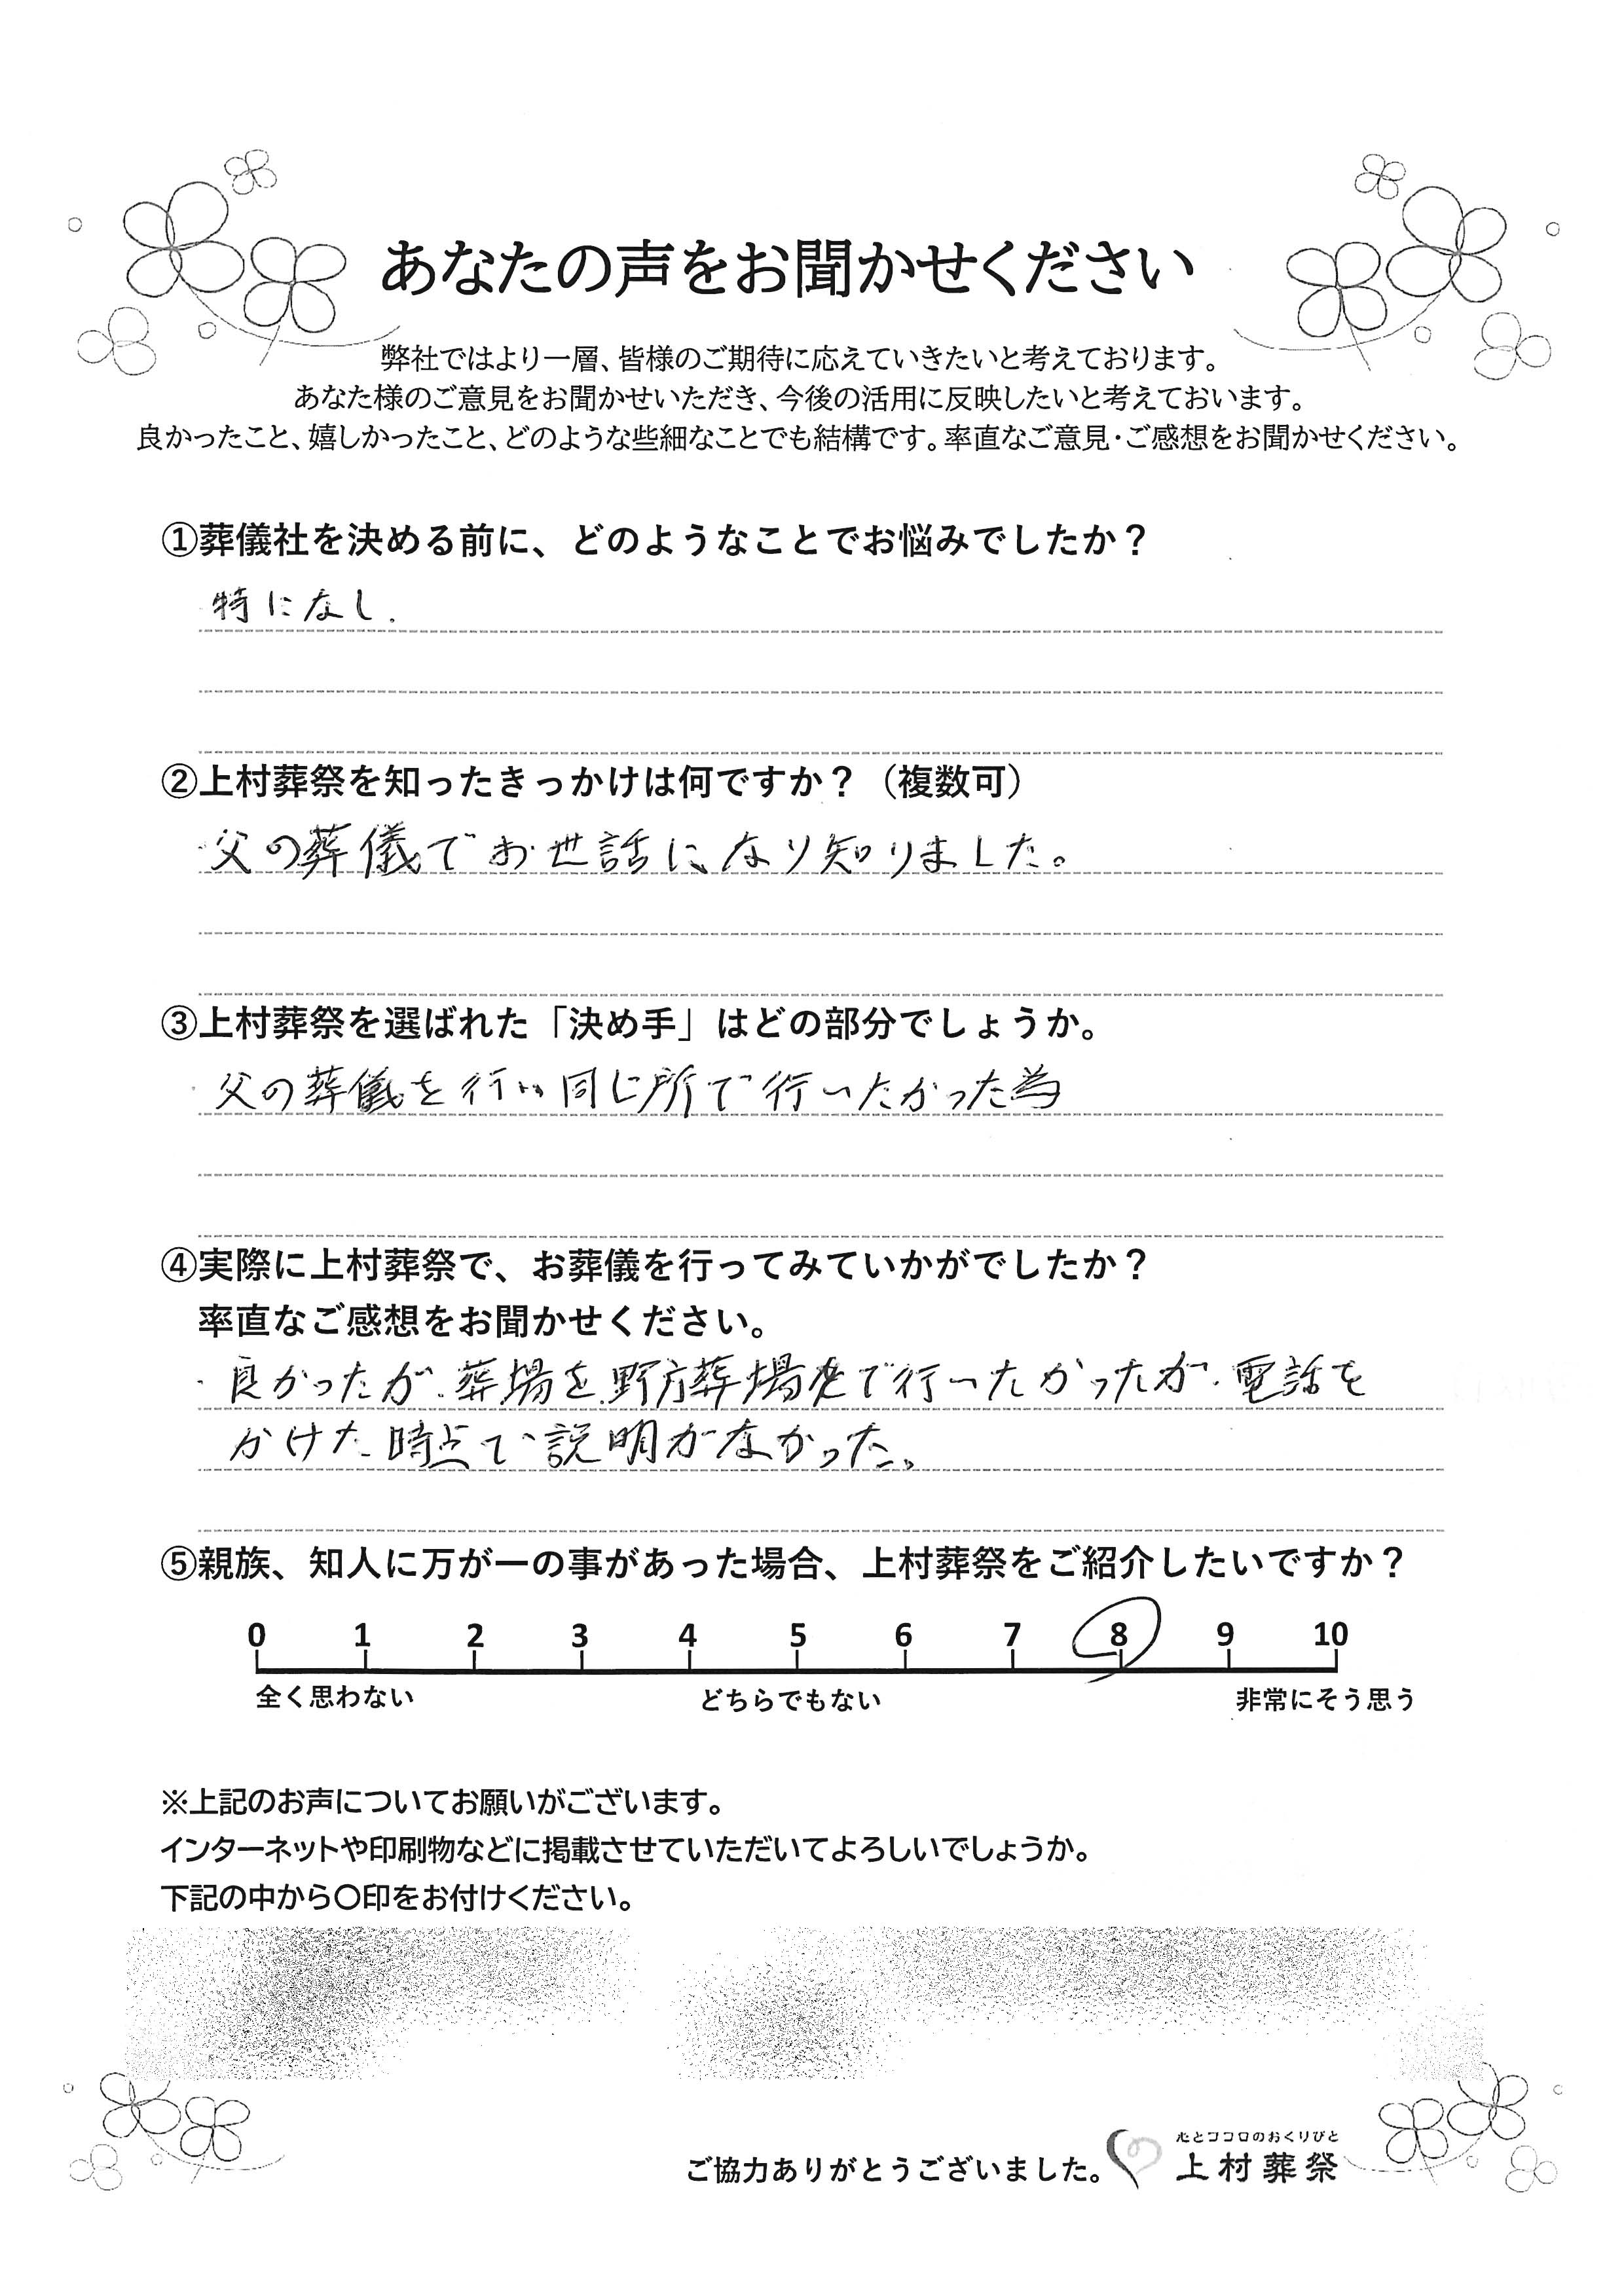 あなたの声をお聞かせください
弊社ではより一層、皆様のご期待に応えていきたいと考えております。
あなた様のご意見をお聞かせいただき、今後の活用に反映したいと考えておいます。
良かったこと、嬉しかったこと、どのような些細なことでも結構です。率直なご意見・ご感想をお聞かせください。
①葬儀社を決める前に、どのようなことでお悩みでしたか？
特になし.
②上村葬祭を知ったきっかけは何ですか？（複数可）
・父の葬儀でお世話になり知りました。
③上村葬祭を選ばれた「決め手」はどの部分でしょうか。
・父の葬儀を行い同じ所で行いたかった為
④実際に上村葬祭で、お葬儀を行ってみていかがでしたか？
率直なご感想をお聞かせください。
・良かったが、葬場を、野方葬場で行いたかったが、電話を
かけた時点で説明がなかった。
⑤親族、知人に万が一の事があった場合、上村葬祭をご紹介したいですか？
0 1 2 3 4 5 6 7 8 9 10
全く思わない どちらでもない 非常にそう思う
※上記のお声についてお願いがございます。
インターネットや印刷物などに掲載させていただいてよろしいでしょうか。
下記の中から〇印をお付けください。
心とココロのおくりびと
ご協力ありがとうございました。 上村葬祭